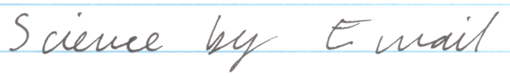 Science by Email